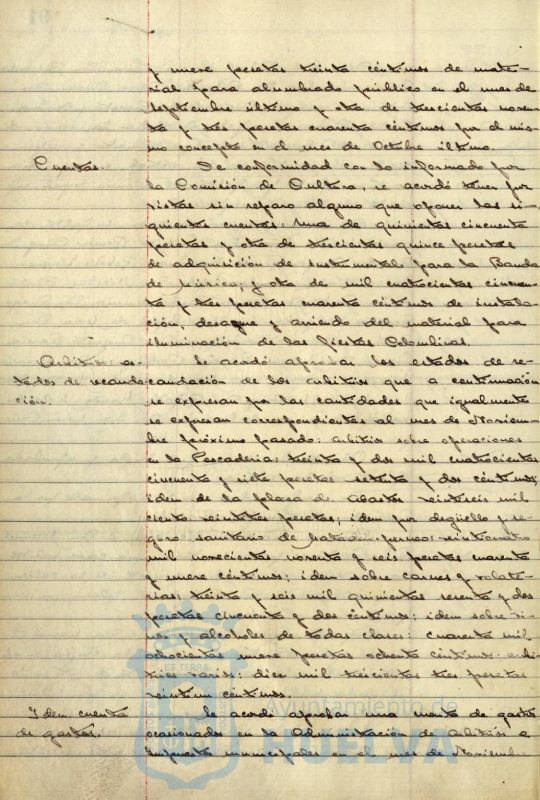 y nueve pesetas treinta céntimos de mate-
rial para alumbrado público en el mes de
Septiembre último y otra de trescientas noven-
ta y tres pesetas cuarenta céntimos por el mis-
mo concepto en el mes de Octubre último.
Cuentas. De conformidad con lo informado por
la Comisión de Cultura, se acordó tener por
vistas sin reparo alguno que oponer las si-
guientes cuentas: Una de quinientas cincuenta
pesetas y otra de trescientas quince pesetas
de adquisición de instrumental para la Banda
de Música; y otra de mil cuatrocientas cincuen-
ta y tres pesetas cuarenta céntimos de instala-
ción, desague y arriendo del material para
iluminación de las fiestas Colombinas.
Arbitrios: es- Se acordó aprobar los estados de re-
tados de recauda caudación de los arbitrios que a continuación
ción. se expresan por las cantidades que igualmente
se expresan correspondientes al mes de Noviem-
bre próximo pasado: arbitrio sobre operaciones
en la Pescadería: treinta y dos mil cuatrocientas
cincuenta y siete pesetas setenta y dos céntimos;
idem de la plaza de Abastos veintiseis mil
ciento veintitres pesetas; idem por degüello y se-
guro sanitario de Matadero veinticuatro
mil novecientas noventa y seis pesetas cuarenta
y nueve céntimos; idem sobre carnes y volate-
rías: treinta y seis mil quinientas sesenta y dos
pesetas cincuenta y dos céntimos; idem sobre vi-
nos y alcoholes de todas clases: cuarenta mil
ochocientas nueve pesetas ochenta céntimos: arbi-
trios varios: diez mil trescientas tres pesetas
veintiun céntimos.
Idem. cuenta Se acordó aprobar una cuenta de gastos
de gastos. ocasionados en la Administración de Arbitrios e
Impuestos municipales en el mes de Noviembre
Ayuntamiento de
HUELVA